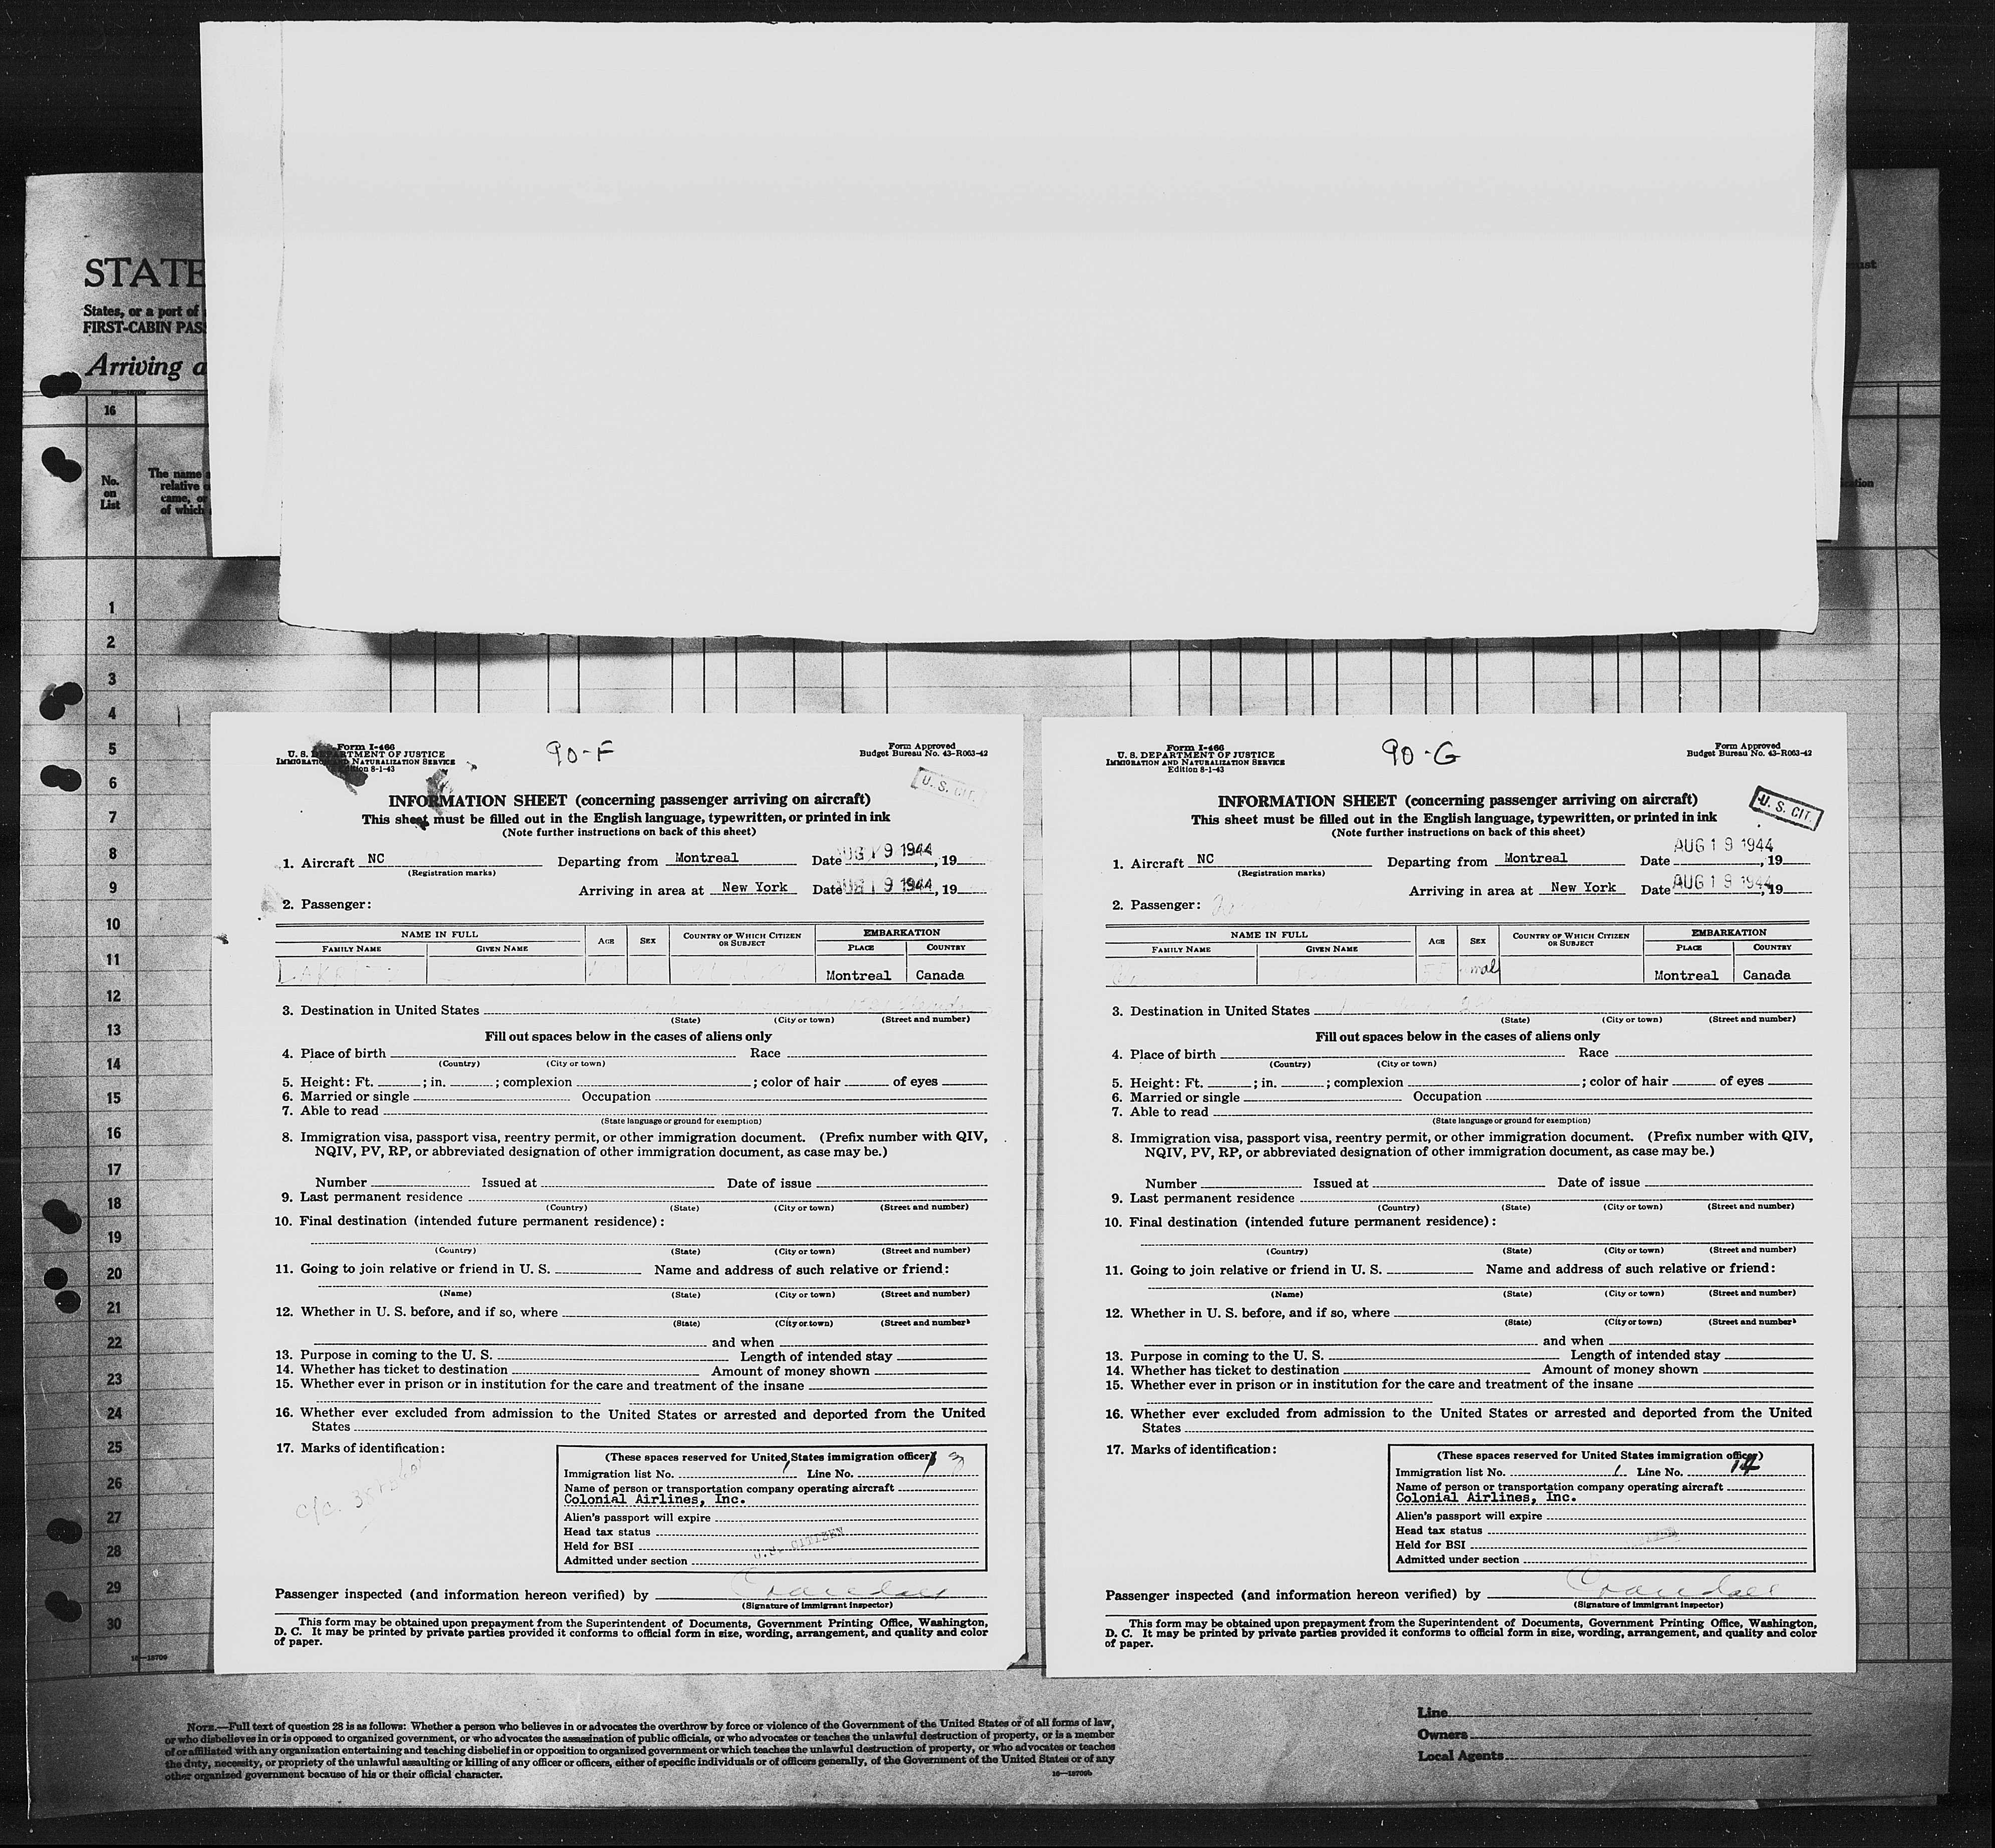 STATE
States, or a port of
FIRST-CABIN PAS
Arriving a
16
No.
on
List
The name
relative
came, or
of which
1
2
3
4
5
6
7
8
9
10
11
12
13
14
15
16
17
18
19
20
21
22
23
24
25
26
27
28
29
30
Form I-466
U. S. DEPARTMENT OF JUSTICE
IMMIGRATION AND NATURALIZATION SERVICE
Edition 8-1-43
90-F
Form Approved
Budget Bureau No. 43-R063-42
U. S. CIT.
INFORMATION SHEET (concerning passenger arriving on aircraft)
This sheet must be filled out in the English language, typewritten, or printed in ink
(Note further instructions on back of this sheet)
1. Aircraft NC Departing from Montreal Date AUG 19 1944, 19
(Registration marks)
Arriving in area at New York Date AUG 19 1944, 19
2. Passenger:
NAME IN FULL AGE SEX COUNTRY OF WHICH CITIZEN OR SUBJECT EMBARKATION
FAMILY NAME GIVEN NAME PLACE COUNTRY
Montreal Canada
3. Destination in United States
(State) (City or town) (Street and number)
Fill out spaces below in the cases of aliens only
4. Place of birth Race
(Country) (City or town)
5. Height: Ft. ; in. ; complexion ; color of hair of eyes
6. Married or single Occupation
7. Able to read
(State language or ground for exemption)
8. Immigration visa, passport visa, reentry permit, or other immigration document. (Prefix number with QIV,
NQIV, PV, RP, or abbreviated designation of other immigration document, as case may be.)
Number Issued at Date of issue
9. Last permanent residence
(Country) (State) (City or town) (Street and number)
10. Final destination (intended future permanent residence):
(Country) (State) (City or town) (Street and number)
11. Going to join relative or friend in U. S. Name and address of such relative or friend:
(Name) (State) (City or town) (Street and number)
12. Whether in U. S. before, and if so, where
(State) (City or town) (Street and number)
and when
13. Purpose in coming to the U. S. Length of intended stay
14. Whether has ticket to destination Amount of money shown
15. Whether ever in prison or in institution for the care and treatment of the insane
16. Whether ever excluded from admission to the United States or arrested and deported from the United
States
17. Marks of identification:
(These spaces reserved for United States immigration officer)
Immigration list No. 1 Line No. 3
Name of person or transportation company operating aircraft
Colonial Airlines, Inc.
Alien's passport will expire
Head tax status
Held for BSI U.S. CITIZEN
Admitted under section
Passenger inspected (and information hereon verified) by Crandall
(Signature of immigrant inspector)
This form may be obtained upon prepayment from the Superintendent of Documents, Government Printing Office, Washington,
D. C. It may be printed by private parties provided it conforms to official form in size, wording, arrangement, and quality and color
of paper.
Form I-466
U. S. DEPARTMENT OF JUSTICE
IMMIGRATION AND NATURALIZATION SERVICE
Edition 8-1-43
90-G
Form Approved
Budget Bureau No. 43-R063-42
U. S. CIT.
INFORMATION SHEET (concerning passenger arriving on aircraft)
This sheet must be filled out in the English language, typewritten, or printed in ink
(Note further instructions on back of this sheet)
1. Aircraft NC Departing from Montreal Date AUG 19 1944, 19
(Registration marks)
Arriving in area at New York Date AUG 19 1944, 19
2. Passenger:
NAME IN FULL AGE SEX COUNTRY OF WHICH CITIZEN OR SUBJECT EMBARKATION
FAMILY NAME GIVEN NAME PLACE COUNTRY
mal Montreal Canada
3. Destination in United States
(State) (City or town) (Street and number)
Fill out spaces below in the cases of aliens only
4. Place of birth Race
(Country) (City or town)
5. Height: Ft. ; in. ; complexion ; color of hair of eyes
6. Married or single Occupation
7. Able to read
(State language or ground for exemption)
8. Immigration visa, passport visa, reentry permit, or other immigration document. (Prefix number with QIV,
NQIV, PV, RP, or abbreviated designation of other immigration document, as case may be.)
Number Issued at Date of issue
9. Last permanent residence
(Country) (State) (City or town) (Street and number)
10. Final destination (intended future permanent residence):
(Country) (State) (City or town) (Street and number)
11. Going to join relative or friend in U. S. Name and address of such relative or friend:
(Name) (State) (City or town) (Street and number)
12. Whether in U. S. before, and if so, where
(State) (City or town) (Street and number)
and when
13. Purpose in coming to the U. S. Length of intended stay
14. Whether has ticket to destination Amount of money shown
15. Whether ever in prison or in institution for the care and treatment of the insane
16. Whether ever excluded from admission to the United States or arrested and deported from the United
States
17. Marks of identification:
(These spaces reserved for United States immigration officer)
Immigration list No. 1 Line No. 14
Name of person or transportation company operating aircraft
Colonial Airlines, Inc.
Alien's passport will expire
Head tax status
Held for BSI
Admitted under section
Passenger inspected (and information hereon verified) by Crandall
(Signature of immigrant inspector)
This form may be obtained upon prepayment from the Superintendent of Documents, Government Printing Office, Washington,
D. C. It may be printed by private parties provided it conforms to official form in size, wording, arrangement, and quality and color
of paper.
16—18706
NOTE.—Full text of question 28 is as follows: Whether a person who believes in or advocates the overthrow by force or violence of the Government of the United States or of all forms of law,
or who disbelieves in or is opposed to organized government, or who advocates the assassination of public officials, or who advocates or teaches the unlawful destruction of property, or is a member
of or affiliated with any organization entertaining and teaching disbelief in or opposition to organized government or which teaches the unlawful destruction of property, or who advocates or teaches
the duty, necessity, or propriety of the unlawful assaulting or killing of any officer or officers, either of specific individuals or of officers generally, of the Government of the United States or of any
other organized government because of his or their official character.
Line
Owners
Local Agents